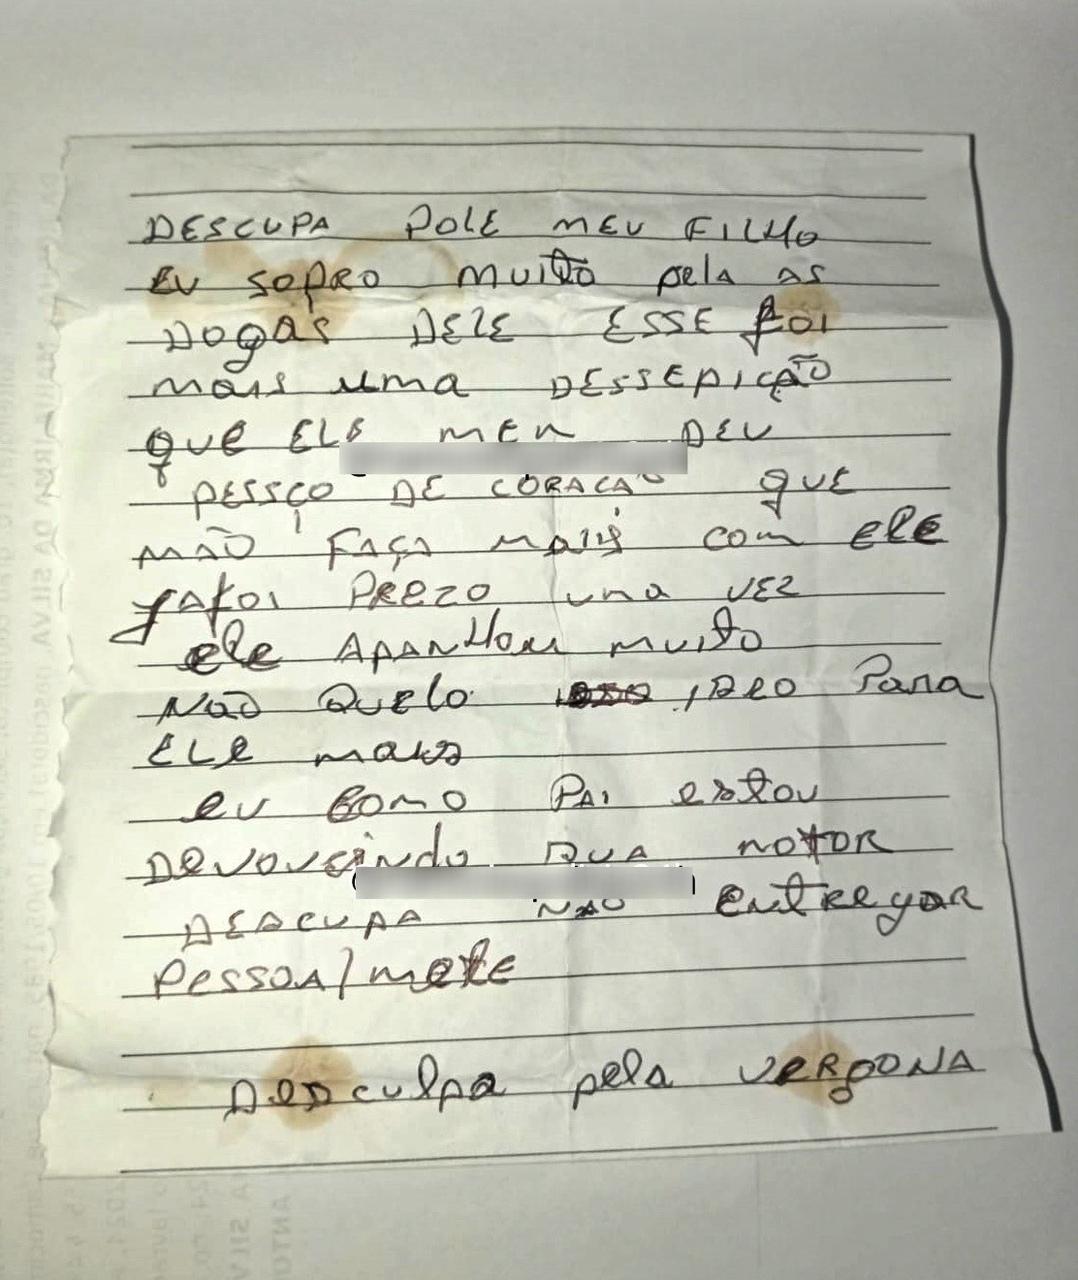 DESCUPA POLE MEU FILHO
EU SOPRO MUITO pela as
DOGAS DELE ESSE FOI
mais uma DESSEPIÇÃO
que ELE MEU DEU
PESSÇO DE CORACAO que
MÃO FAÇA mais com ele
JAFOI PREZO uma VEZ
ele APANHOU muito
NÃO QUELO ,DEO Para
ELE mais
eu COMO PAI estou
Devouveindo SUA MOTOR
DESCUPA NAO entregar
PESSOAlmete
Desculpa pela VERGONA